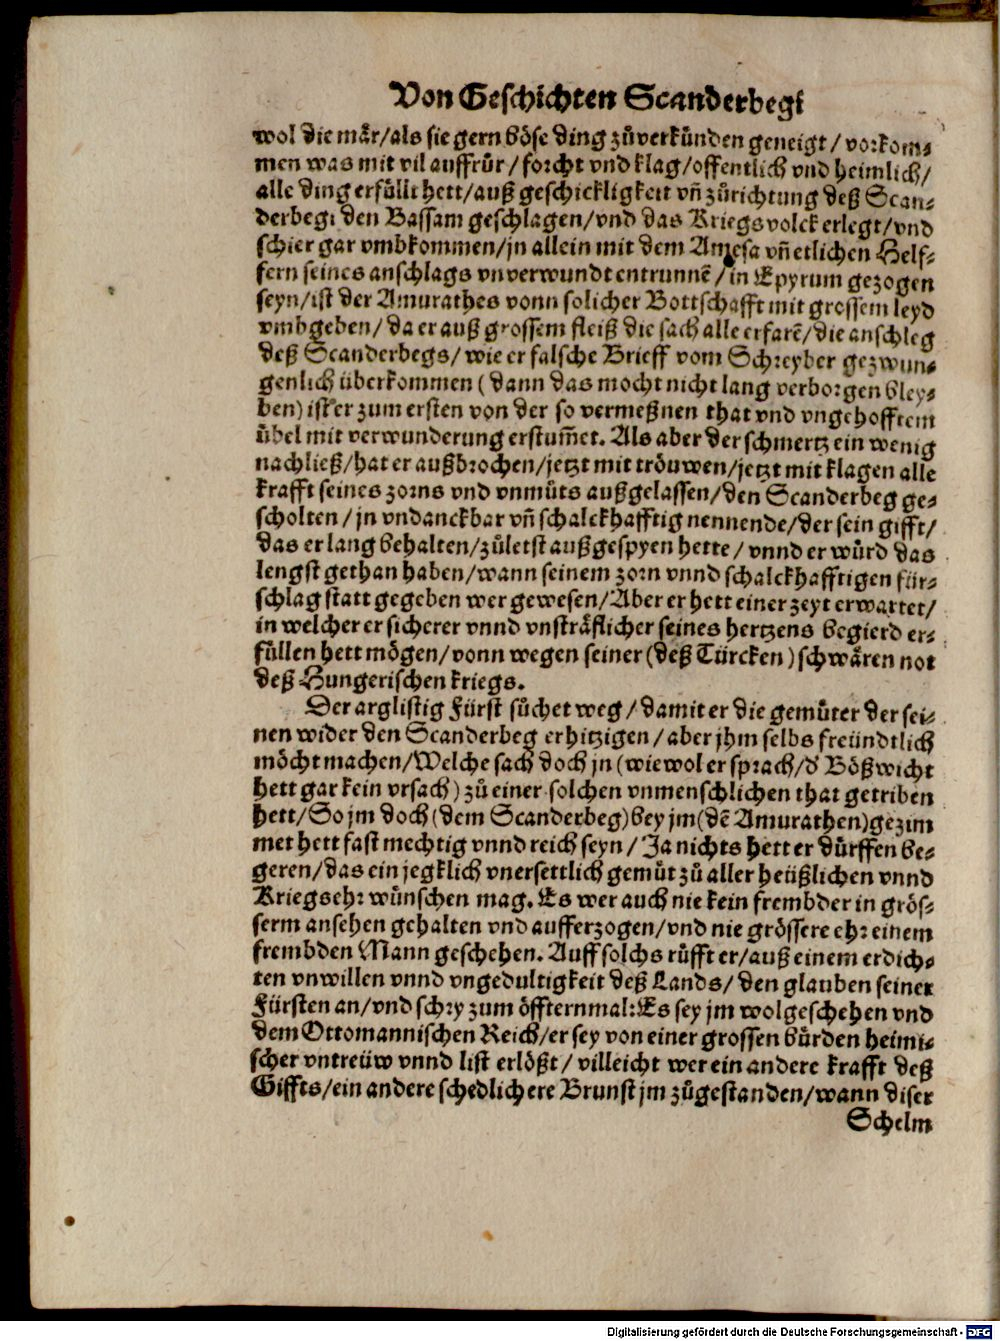 Von Geschichten Scanderbegi
wol die mår/als sie gern böse ding zůverkünden geneigt/vorkom⸗
men was mit vil auffrůr/forcht vnd klag/offentlich vnd heimlich/
alle ding erfüllt hett/auß geschickligkeit vñ zůrichtung deß Scan⸗
derbegi den Bassam geschlagen/vnd das Kriegsvolck erlegt/vnd
schier gar vmbkommen/jn allein mit dem Amesa vñ etlichen Helf⸗
fern seines anschlags vnverwundt entrunnẽ/in Epyrum gezogen
seyn/ist der Amurathes vonn solicher Bottschafft mit grossem leyd
vmbgeben/da er auß grossem fleiß die sach alle erfarẽ/die anschleg
deß Scanderbegs/wie er falsche Brieff vom Schreyber gezwun⸗
genlich überkommen (dann das mocht nicht lang verborgen bley⸗
ben) ist er zum ersten von der so vermeßnen that vnd vngehofftem
übel mit verwunderung erstum̃et. Als aber der schmertz ein wenig
nachließ/hat er außbrochen/jetzt mit tröuwen/jetzt mit klagen alle
krafft seines zorns vnd vnmůts außgelassen/den Scanderbeg ge⸗
scholten/jn vndanckbar vñ schalckhafftig nennende/der sein gifft/
das er lang behalten/zůletst außgespyen hette/vnnd er würd das
lengst gethan haben/wann seinem zorn vnnd schalckhafftigen für⸗
schlag statt gegeben wer gewesen/Aber er hett einer zeyt erwartet/
in welcher er sicherer vnnd vnsträflicher seines hertzens begierd er⸗
füllen hett mögen/vonn wegen seiner (deß Türcken) schwären not
deß Hungerischen kriegs.
Der arglistig Fürst sůchet weg/damit er die gemůter der sei⸗
nen wider den Scanderbeg erhitzigen/aber jhm selbs freündtlich
möcht machen/Welche sach doch jn (wiewol er sprach/d' Bößwicht
hett gar kein vrsach) zů einer solchen vnmenschlichen that getriben
hett/So jm doch (dem Scanderbeg) bey jm (dẽ Amurathen) gezim
met hett fast mechtig vnnd reich seyn/Ja nichts hett er dürffen be⸗
geren/das ein jegklich vnersettlich gemůt zů aller heüßlichen vnnd
Kriegsehr wünschen mag. Es wer auch nie kein frembder in grös⸗
serm ansehen gehalten vnd aufferzogen/vnd nie grössere ehr einem
frembden Mann geschehen. Auff solchs růfft er/auß einem erdich⸗
ten vnwillen vnnd vngedultigkeit deß Lands/den glauben seiner
Fürsten an/vnd schry zum öffternmal: Es sey jm wol geschehen vnd
dem Ottomannischen Reich/er sey von einer grossen bürden heimi⸗
scher vntreüw vnnd list erlößt/villeicht wer ein andere krafft deß
Giffts/ein andere schedlichere Brunst jm zůgestanden/wann diser
Schelm
Digitalisierung gefördert durch die Deutsche Forschungsgemeinschaft - DFG